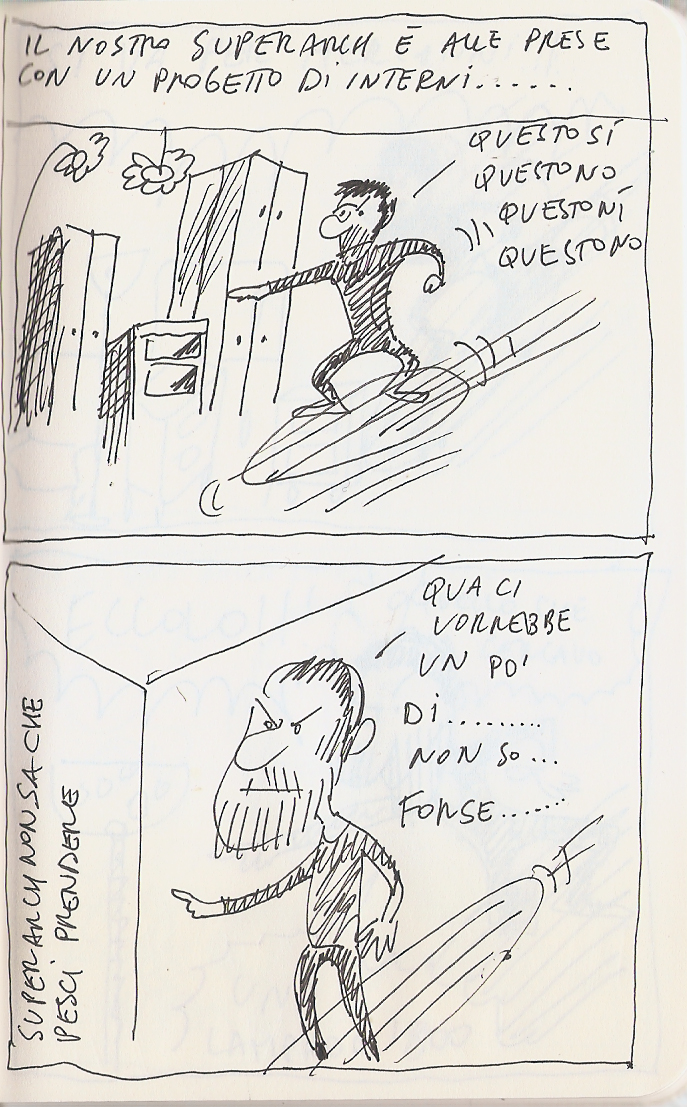 IL NOSTRO SUPERARCH È ALLE PRESE
CON UN PROGETTO DI INTERNI......
QUESTO SÍ
QUESTO NO
QUESTO NÍ
QUESTO NO
QUA CI
VORREBBE
UN PO'
DI.........
NON SO...
FORSE.......
SUPERARCH NON SA CHE
PESCI PRENDERE